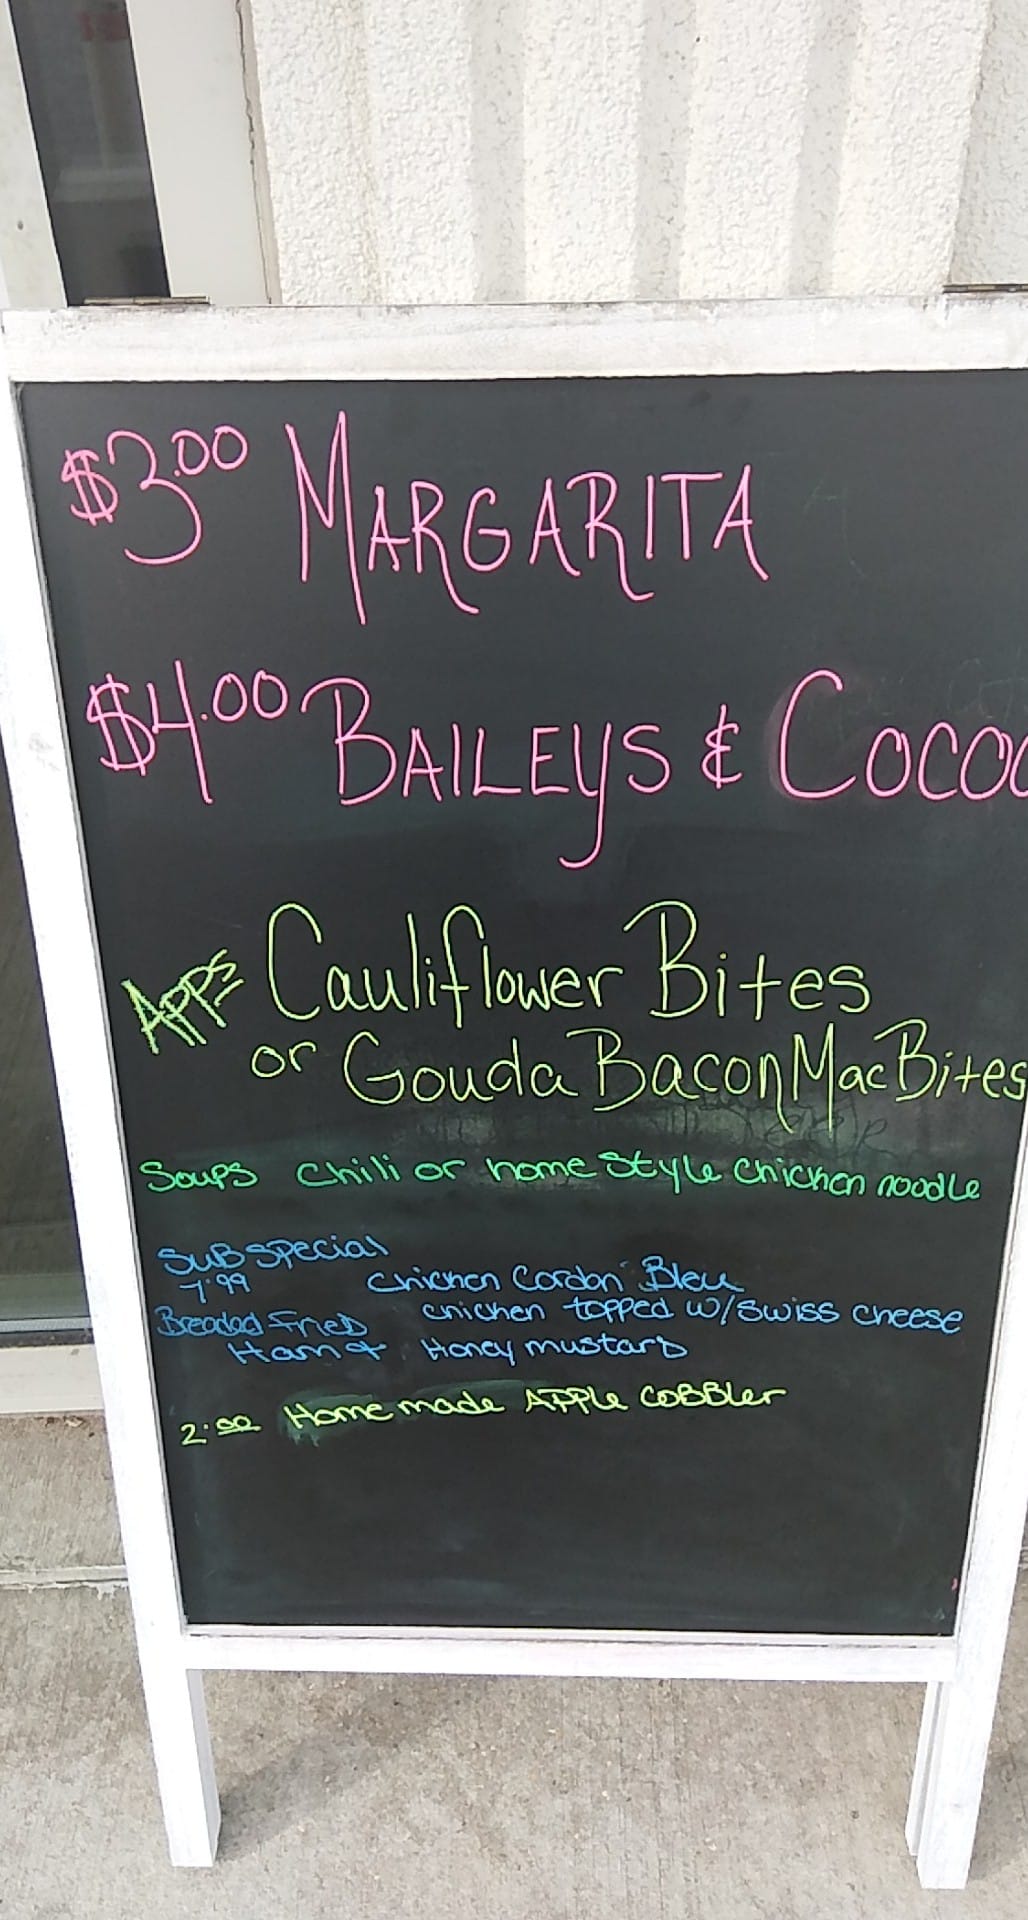 $3.00 MARGARITA
$4.00 BAILEYS & COCOA
APPS Cauliflower Bites
or Gouda Bacon Mac Bites
Soups Chili or home Style Chicken noodle
SUB SPECIAL
7.99 Chicken Cordon Bleu
Breaded Fried chicken topped w/ Swiss cheese
Ham & Honey mustard
2.00 Home made APPLe COBBler